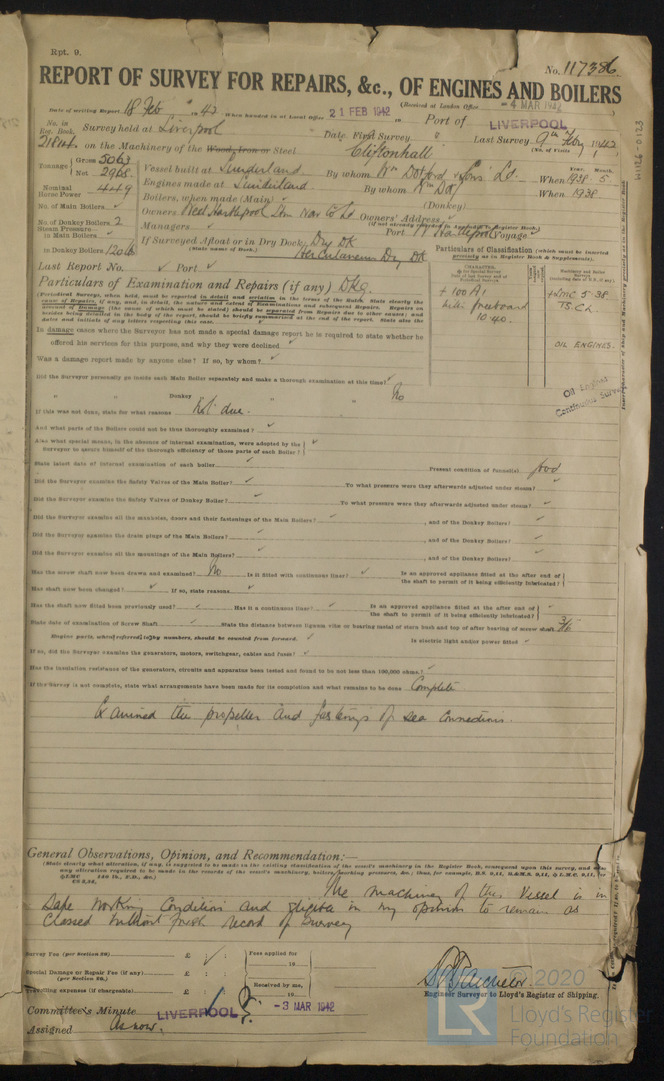 Rpt. 9.
No. 117386.
REPORT OF SURVEY FOR REPAIRS, &c., OF ENGINES AND BOILERS
(Received at London Office 4 MAR 1942
Date of writing Report 18 Feb 1942 When handed in at Local Office 21 FEB 1942 Port of LIVERPOOL
No. in Reg. Book. Survey held at Liverpool Date. First Survey " Last Survey 9th Feby 1942
(No. of Visits
21844 on the Machinery of the Wood, Iron or Steel Cliftonhall
Tonnage Gross 5063 Net 2968
Vessel built at Sunderland By whom Wm Doxford & Sons Ld. When 1938 5
Year. Month.
Engines made at Sunderland By whom Wm Dox When 1938
Nominal Horse Power 449
Boilers, when made (Main) (Donkey)
No. of Main Boilers
Owners West Hartlepool Stm Nav Co Ld Owners' Address
(if not already recorded in Appendix to Register Book.)
No. of Donkey Boilers 2
Managers Port W Hartlepool Voyage
Steam Pressure in Main Boilers
If Surveyed Afloat or in Dry Dock Dry Dk
(State name of Dock.) Herculaneum Dry Dk
in Donkey Boilers 120 lb
Last Report No. Port
Particulars of Classification (which must be inserted precisely as in Register Book & Supplements).
+ 100 A1
with freeboard
10.40.
+ LMC 5.38
TS.CL.
OIL ENGINES.
Oil Engines
Continuous Survey
Particulars of Examination and Repairs (if any) Dkg.
In damage cases where the Surveyor has not made a special damage report he is required to state whether he
offered his services for this purpose, and why they were declined
Was a damage report made by anyone else? If so, by whom?
Did the Surveyor personally go inside each Main Boiler separately and make a thorough examination at this time?
" " Donkey " " " No
If this was not done, state for what reasons Not due.
And what parts of the Boilers could not be thus thoroughly examined?
Also what special means, in the absence of internal examination, were adopted by the
Surveyor to assure himself of the thorough efficiency of those parts of each Boiler?
State latest date of internal examination of each boiler Present condition of funnel(s) Good
Did the Surveyor examine the Safety Valves of the Main Boiler? To what pressure were they afterwards adjusted under steam?
Did the Surveyor examine the Safety Valves of Donkey Boiler? To what pressure were they afterwards adjusted under steam?
Did the Surveyor examine all the manholes, doors and their fastenings of the Main Boilers? , and of the Donkey Boilers?
Did the Surveyor examine the drain plugs of the Main Boilers? , and of the Donkey Boilers?
Did the Surveyor examine all the mountings of the Main Boilers? , and of the Donkey Boilers?
Has the screw shaft now been drawn and examined? No Is it fitted with continuous liner? Is an approved appliance fitted at the after end of
the shaft to permit of it being efficiently lubricated?
Has shaft now been changed? If so, state reasons
Has the shaft now fitted been previously used? Has it a continuous liner? Is an approved appliance fitted at the after end of
the shaft to permit of it being efficiently lubricated?
State date of examination of Screw Shaft State the distance between lignum vitæ or bearing metal of stern bush and top of after bearing of screw shaft 3/16
Engine parts, when referred to by numbers, should be counted from forward. Is electric light and/or power fitted
If so, did the Surveyor examine the generators, motors, switchgear, cables and fuses?
Has the insulation resistance of the generators, circuits and apparatus been tested and found to be not less than 100,000 ohms?
If the Survey is not complete, state what arrangements have been made for its completion and what remains to be done Complete.
Examined the propeller and fastenings of sea connections.
General Observations, Opinion, and Recommendation:—
The machinery of this Vessel is in
safe working condition and eligible in my opinion to remain as
classed without fresh record of Survey
Survey Fee (per Section 29) £ : :
Special Damage or Repair Fee (if any) £ : :
(per Section 29.)
Travelling expenses (if chargeable) £ : :
Fees applied for
19
Received by me,
19
Engineer Surveyor to Lloyd's Register of Shipping.
Committee's Minute LIVERPOOL -3 MAR 1942
Assigned As now.
W1126-0123
© 2020
LR
Lloyd's Register
Foundation